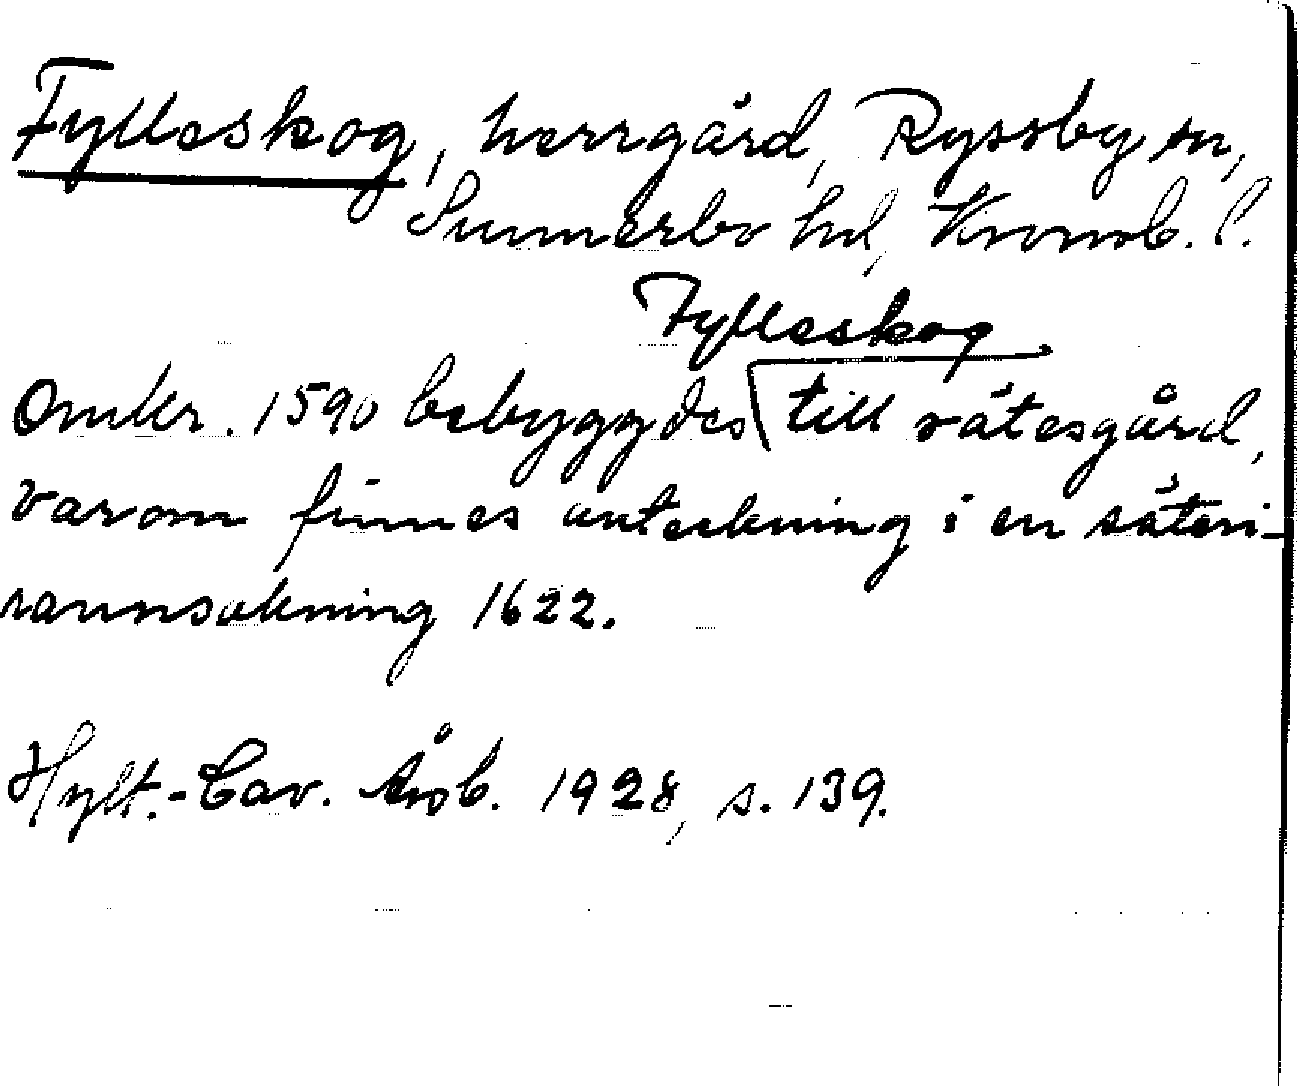 Fylleskog, herrgård, Ryssby sn,
Sunnerbo hd, Kronob. l.
Fylleskog
Omkr. 1590 bebyggdes till sätesgård,
varom finnes anteckning i en säteri-
rannsakning 1622.
Hylt.-Cav. Årsb. 1928, s. 139.